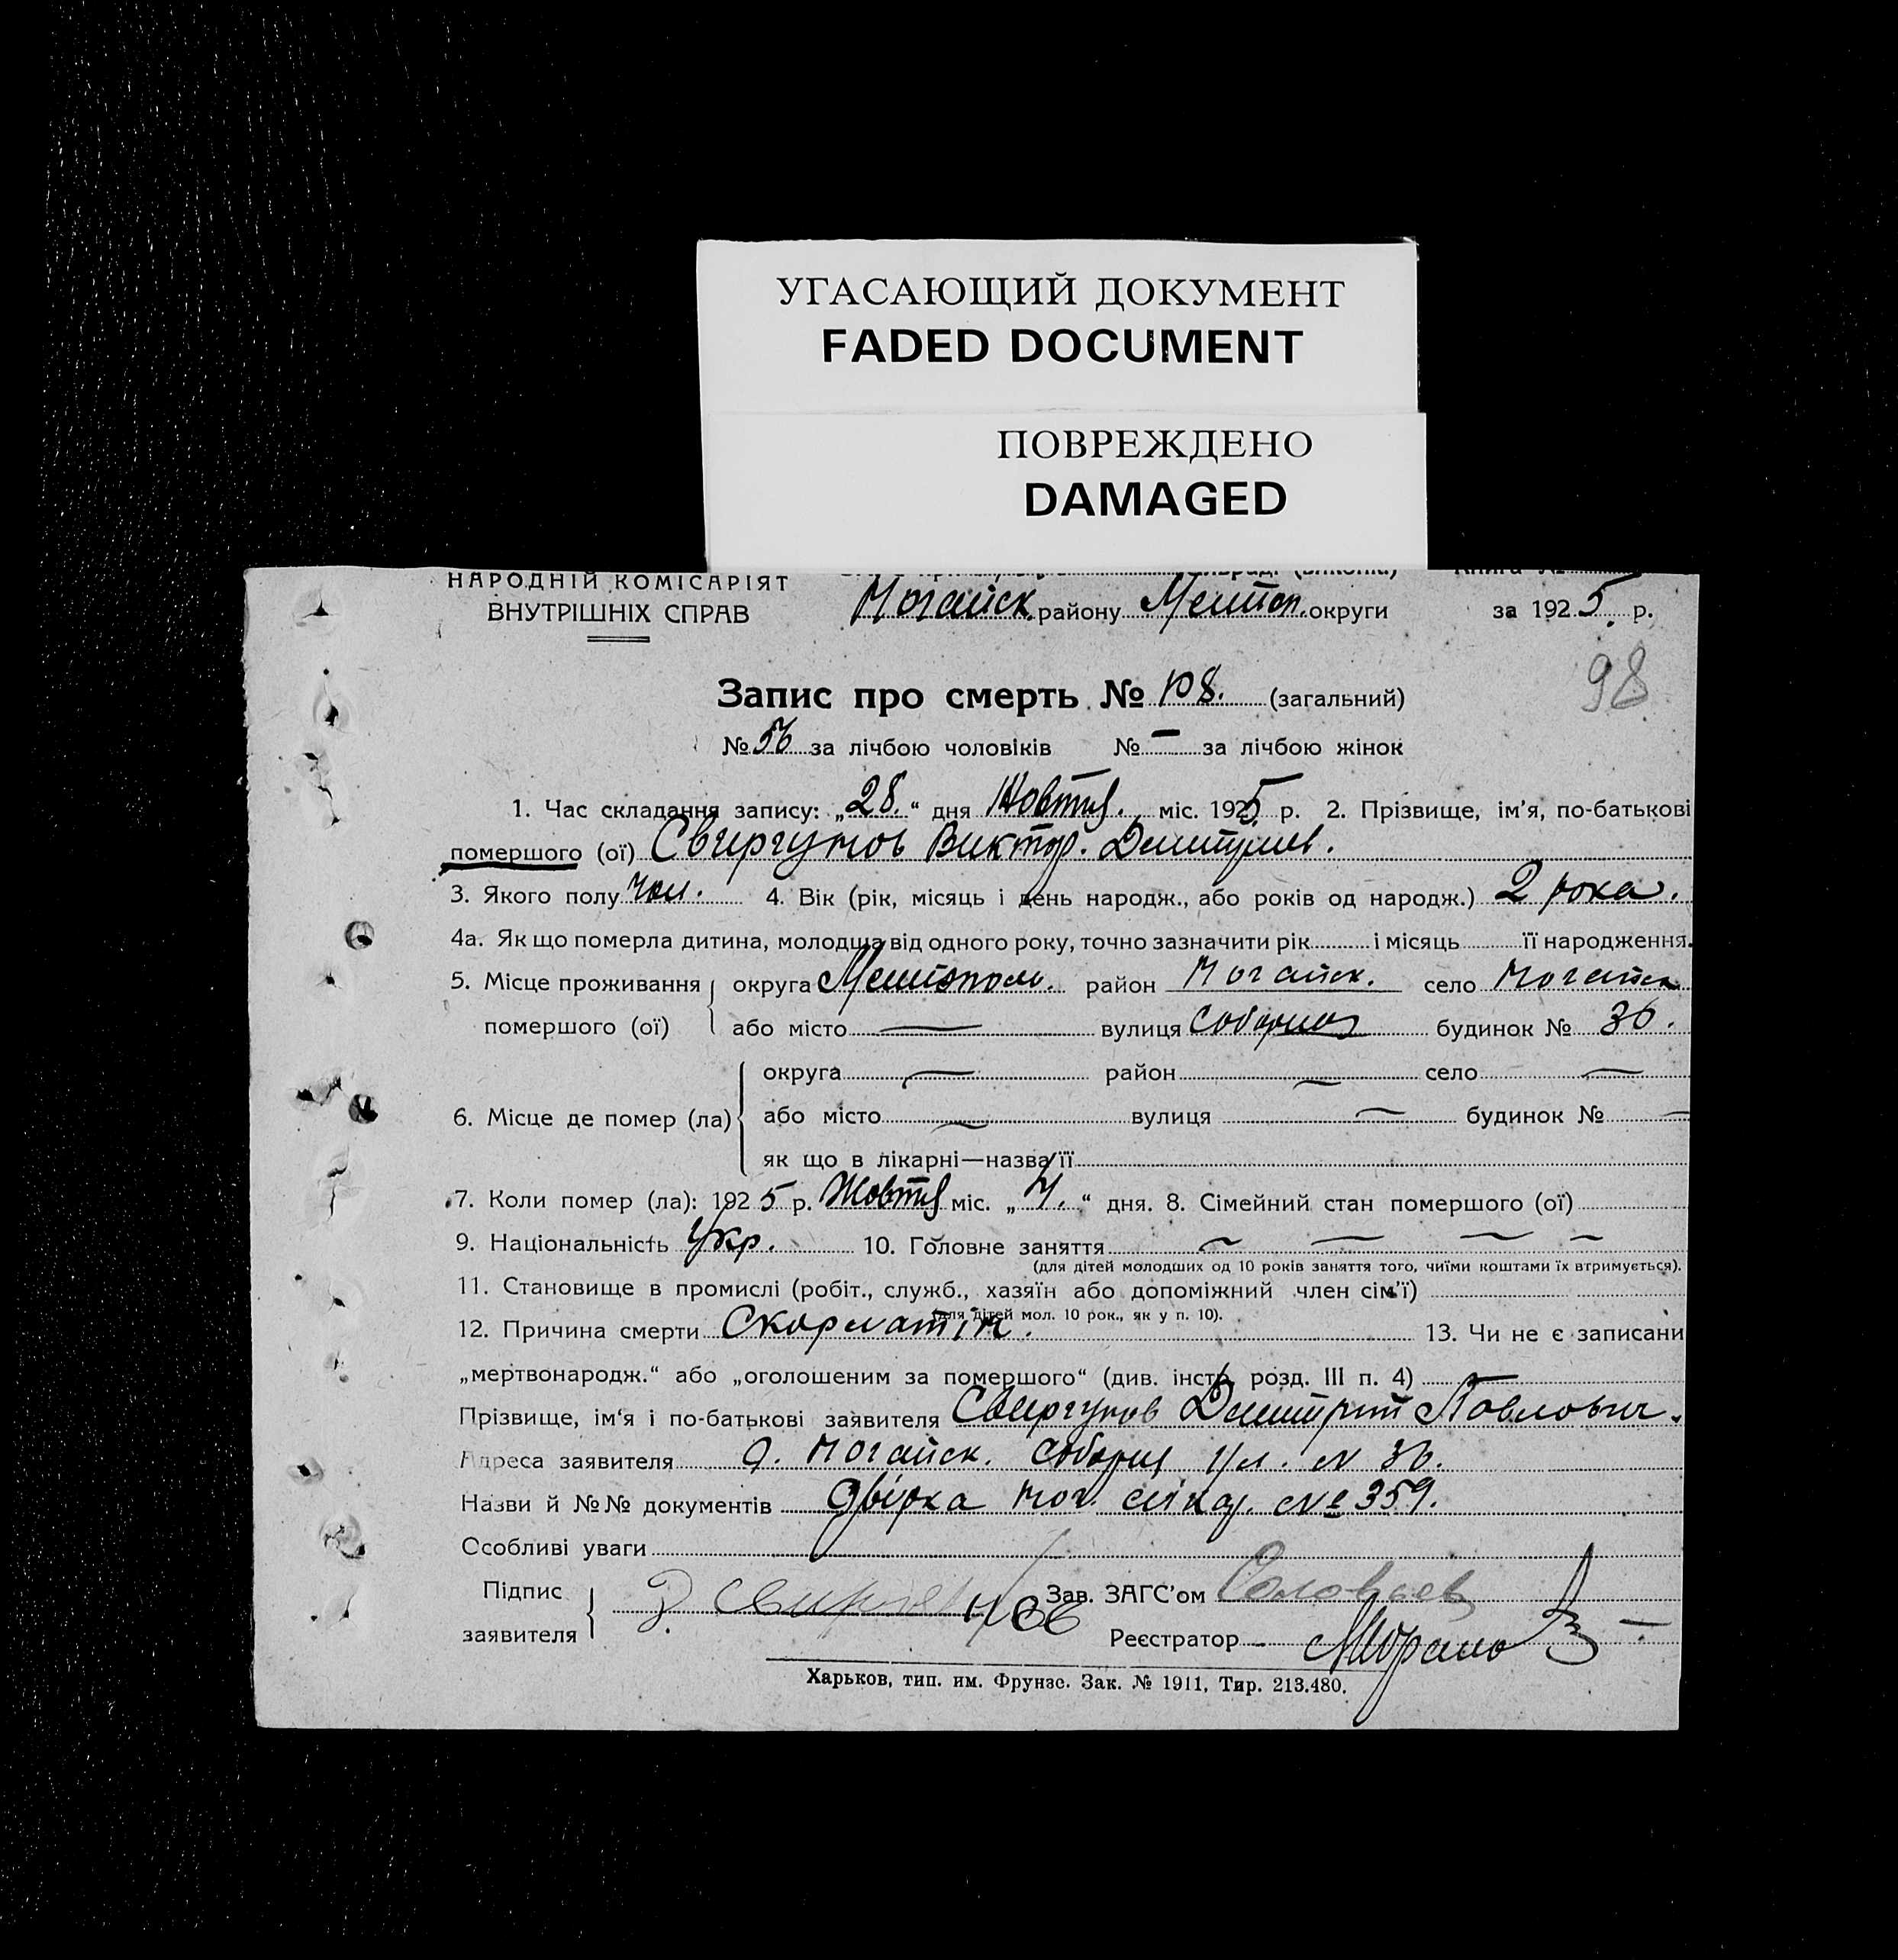 УГАСАЮЩИЙ ДОКУМЕНТ
FADED DOCUMENT
ПОВРЕЖДЕНО
DAMAGED
НАРОДНІЙ КОМІСАРІЯТ
ВНУТРІШНІХ СПРАВ
Ногайск. району Мелітоп. округи за 1925 р.
98
Запис про смерть № 108. (загальний)
№ 56 за лічбою чоловіків № — за лічбою жінок
1. Час складання запису: „28.“ дня Жовтня. міс. 1925 р. 2. Прізвище, ім'я, по-батькові
помершого (ої) Свиргунов Виктор. Дмитриев.
3. Якого полу чол. 4. Вік (рік, місяць і день народж., або років од народж.) 2 рока.
4а. Як що померла дитина, молодша від одного року, точно зазначити рік і місяць її народження.
5. Місце проживання округа Мелітополь. район Ногайск. село Ногайск
помершого (ої) або місто — вулиця Соборная будинок № 36.
округа — район — село —
6. Місце де помер (ла) або місто — вулиця — будинок № —
як що в лікарні—назва її
7. Коли помер (ла): 1925 р. Жовтня міс. „4.“ дня. 8. Сімейний стан помершого (ої)
9. Національність Укр. 10. Головне заняття — — — —
(для дітей молодших од 10 років заняття того, чиїми коштами їх втримується).
11. Становище в промислі (робіт., служб., хазяїн або допоміжний член сім'ї)
(для дітей мол. 10 рок., як у п. 10).
12. Причина смерти Скорлатін. 13. Чи не є записани
„мертвонародж.“ або „оголошеним за помершого“ (див. інстр. розд. III п. 4) —
Прізвище, ім'я і по-батькові заявителя Свиргунов Дмитрий Павлович.
Адреса заявителя Ногайск. Соборна ул. № 36.
Назви й №№ документів Довірка Ног. № 359.
Особливі уваги
Підпис Зав. ЗАГС'ом Соловьев
заявителя Реєстратор
Харьков, тип. им. Фрунзе. Зак. № 1911, Тир. 213.480.